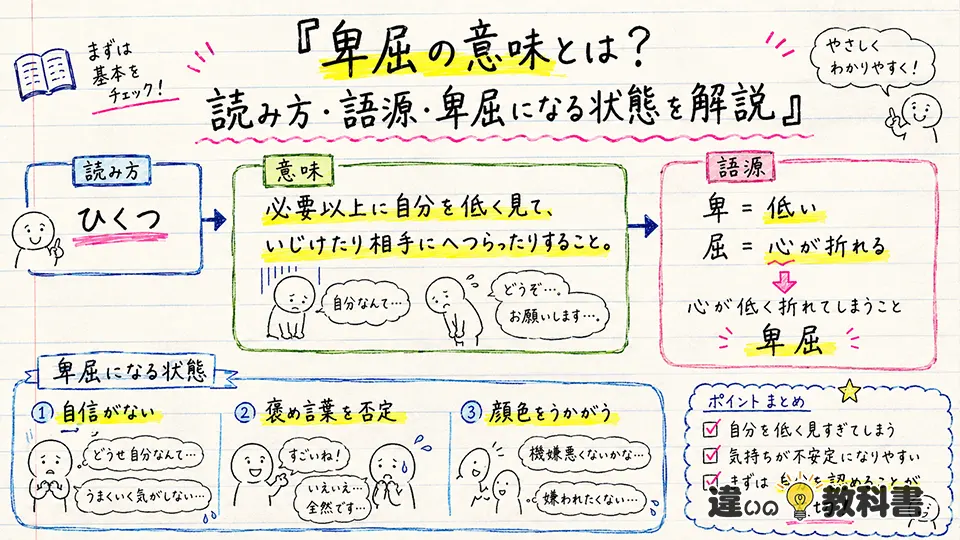 まずは
基本を
チェック!
『卑屈の意味とは?
読み方・語源・卑屈になる状態を解説』
やさしく
わかりやすく!
読み方
ひくつ
意味
必要以上に自分を低く見て、
いじけたり相手にへつらったりすること。
自分なんて…
どうぞ…。
お願いします…。
語源
卑 = 低い
屈 = 心が折れる
心が低く折れてしまうこと
卑屈
卑屈になる状態
① 自信がない
どうせ自分なんて…
うまくいく気がしない…
② 褒め言葉を否定
すごいね!
いえいえ…
全然です…
③ 顔色をうかがう
機嫌悪くないかな…
嫌われたくない…
ポイントまとめ
自分を低く見すぎてしまう
気持ちが不安定になりやすい
まずは 認めることが
違いの教科書